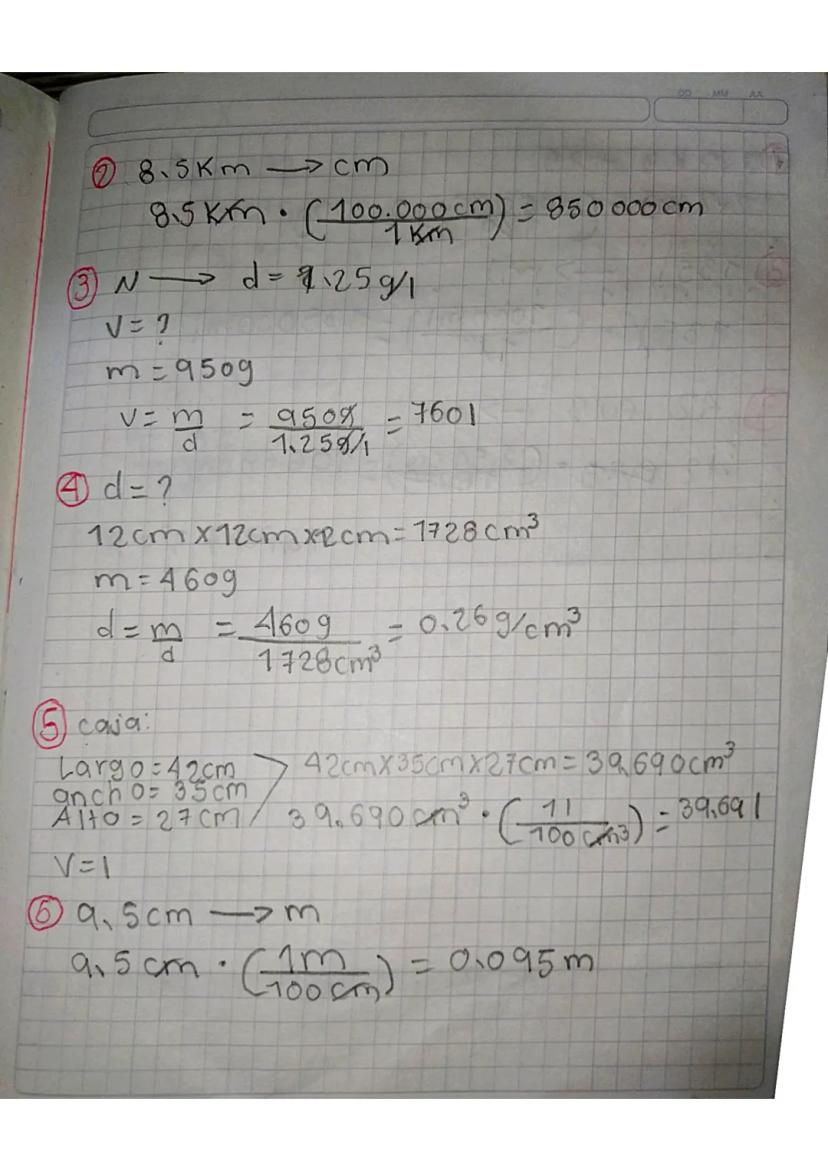 DD MM AA
② 8.5Km → cm
8.5Km · (100.000cm/1Km) = 850000cm
③ N → d = 1.25g/l
V = ?
m = 950g
V = m/d = 950g/1.25g/l = 760l
④ d = ?
12cm x 12cm x 12cm = 1728cm³
m = 460g
d = m/d = 460g/1728cm³ = 0.26g/cm³
⑤ caja:
Largo = 42cm
ancho = 35cm
Alto = 27cm
42cm x 35cm x 27cm = 39.690cm³
39.690cm³ · (1l/100cm³) = 39.69l
V = l
⑥ 9.5cm → m
9.5cm · (1m/100cm) = 0.095m